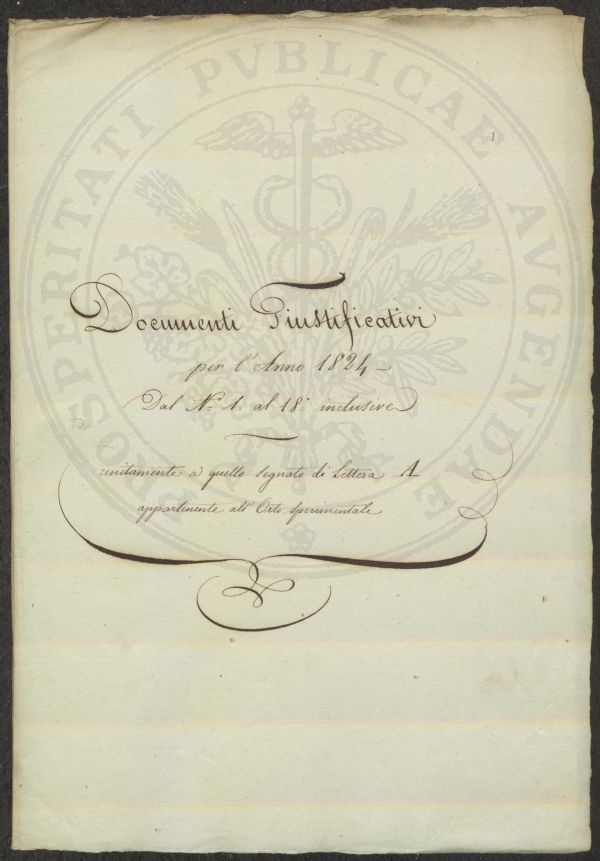 PROSPERITATI PVBLICAE AVGENDAE
1
Documenti Giustificativi
per l'Anno 1824 —
Dal N.° 1. al 18. inclusive
unitamente a quello segnato di Lettera A
appartenente all'Orto sperimentale